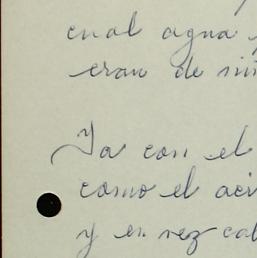 cual agua
eran de
Ya con el
como el
y en vez